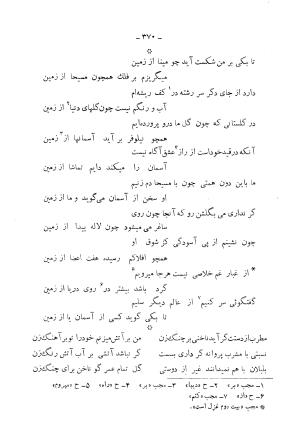 - ۳۷۰ -
*
تا بکی بر من شکست آید چو مینا از زمین
میگریزم بر فلک همچون مسیحا از زمین
دارد از جای دگر سر رشته در¹ کف ریشه‌ام
آب و رنگم نیست چون گلهای دنیا² از زمین
در گلستانی که چون گل ما درو پرورده‌ایم
همچو نیلوفر بر آید آسمانها³ از زمین
آنکه در قید خود است از راز⁴ عشق آگاه نیست
آسمان را میکند دایم تماشا از زمین
ما باین دون همتی چون با مسیحا دم زنیم
او سخن از آسمان می‌گوید و ما از زمین
گر نداری می بگلشن رو که آنجا چون روی
ساغر می‌میشود چون لاله پیدا از زمین
چون نشینم از پی آسودگی کز شوق او
همچو افلاکم رسیده هفت اعضا از زمین
* از غبار غم خلاصی نیست هر جا میرویم⁵
گرد باشد بیشتر در⁶ روی دریا از زمین
گفتگوئی سر کنیم⁷ از عالم دیگر سلیم
تا بکی گوید کسی از آسمان یا از زمین
*
مطرب از دست گر آید ناخنی بر چنگ زن
من بر آتش میزنم خود را تو بر آهنگ زن
نسبتی با مشرب پروانه گر داری بست
گر نباشد آتشی بر آب آتش رنگ زن
بلبلان با هم نمیدانند غیر از دوستی
گل تمام عمر گو ناخن برای چنگ زن
۱- مجب «بر» ۲- ح «دیبا» ۳- مجب «آسمانی» ۴- ح «داه» ۵- ح «میروم»
۶- ح «از» ۷- مجب «کنم»
* مجب «بیت دوم غزل است».